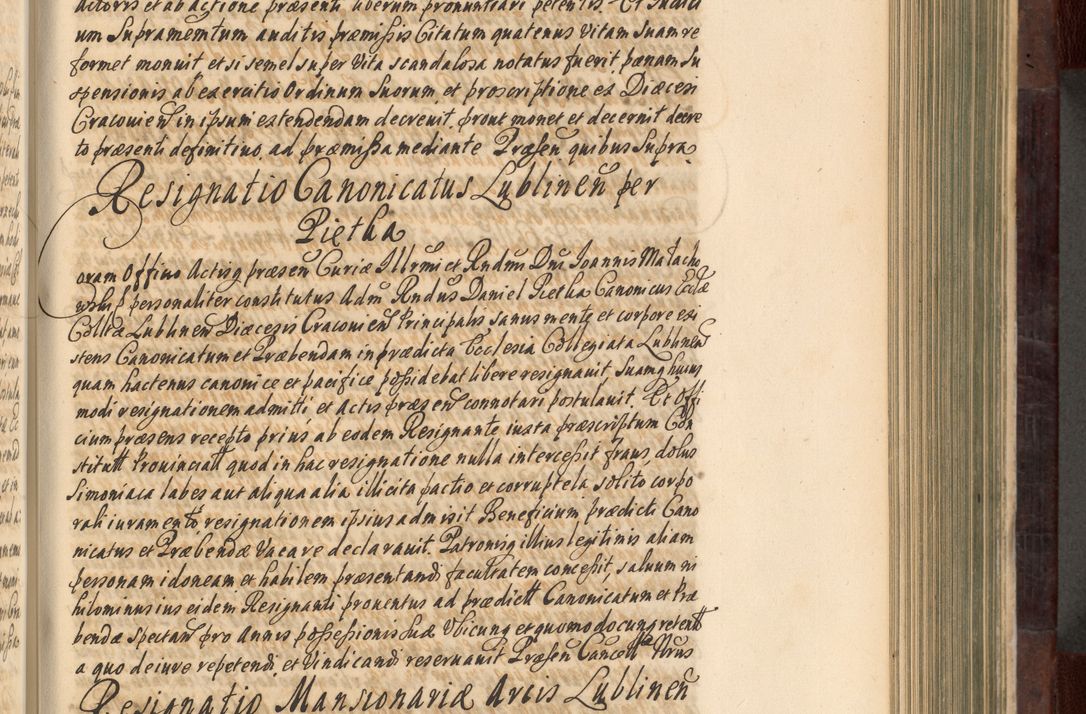 actoris et ab actione præsenti liberum pronuntiari petentis. Et Iudici
um Supramemtum auditis præmissis Citatum quatenus Vitam suam re
formet monuit et si semel super Vita scandalosa notatus fuerit, pœnam Su
spensionis ab exercitio Ordinum Suorum, et proscriptione ex Diæcesi
Cracouien in ipsum extendendam decreuit, prout monet et decernit decre
to præsenti definitiuo, ad præmissa mediante Præsen quibus Supra
Resignatio Canonicatus Lublinen per
Piętha
oram Officio Actisq præsen Curiæ Illrmi et Rndmi Dni Ioannis Małacho
wski personaliter constitutus Adm Rndus Daniel Pietha Canonicus Eccłæ
Colltæ Lublinen Diæcesis Cracouien Principalis sanus mente et corpore exi
stens Canonicatum et Præbendam in prædicta Ecclesia Collegiata Lublinen
quam hactenus canonice et pacifice possidebat libere resignauit Suamq huius
modi resignationem admitti, et Actis præsen connotari postulauit. Et Offi
cium præsens recepto prius ab eodem Resignante iuxta præscriptum Con
stitutt Prouinciatt quod in hac resignatione nulla intercessit fraus, dolus
Simoniaca labes aut aliqua alia illicita pactio et corruptela solito corpo
rali iuramento, resignationem ipsius admisit Beneficium prædicti Cano
nicatus et Præbendæ Vacare declarauit. Patronisq illius legitimis aliam
personam idoneam et habilem præsentandi facultatem concessit, saluum ni
hilominus ius eidem Resignanti prouentus ad prædictt Canonicatum et Præ
bendæ spectan pro Annis possessionis suæ Vbicunq et quomodocunq retentt
a quo de iure repetendi, et Vindicandi reseruauit Præsen Cancellta Nrus
Resignatio Mansionariæ Arcis Lublinen